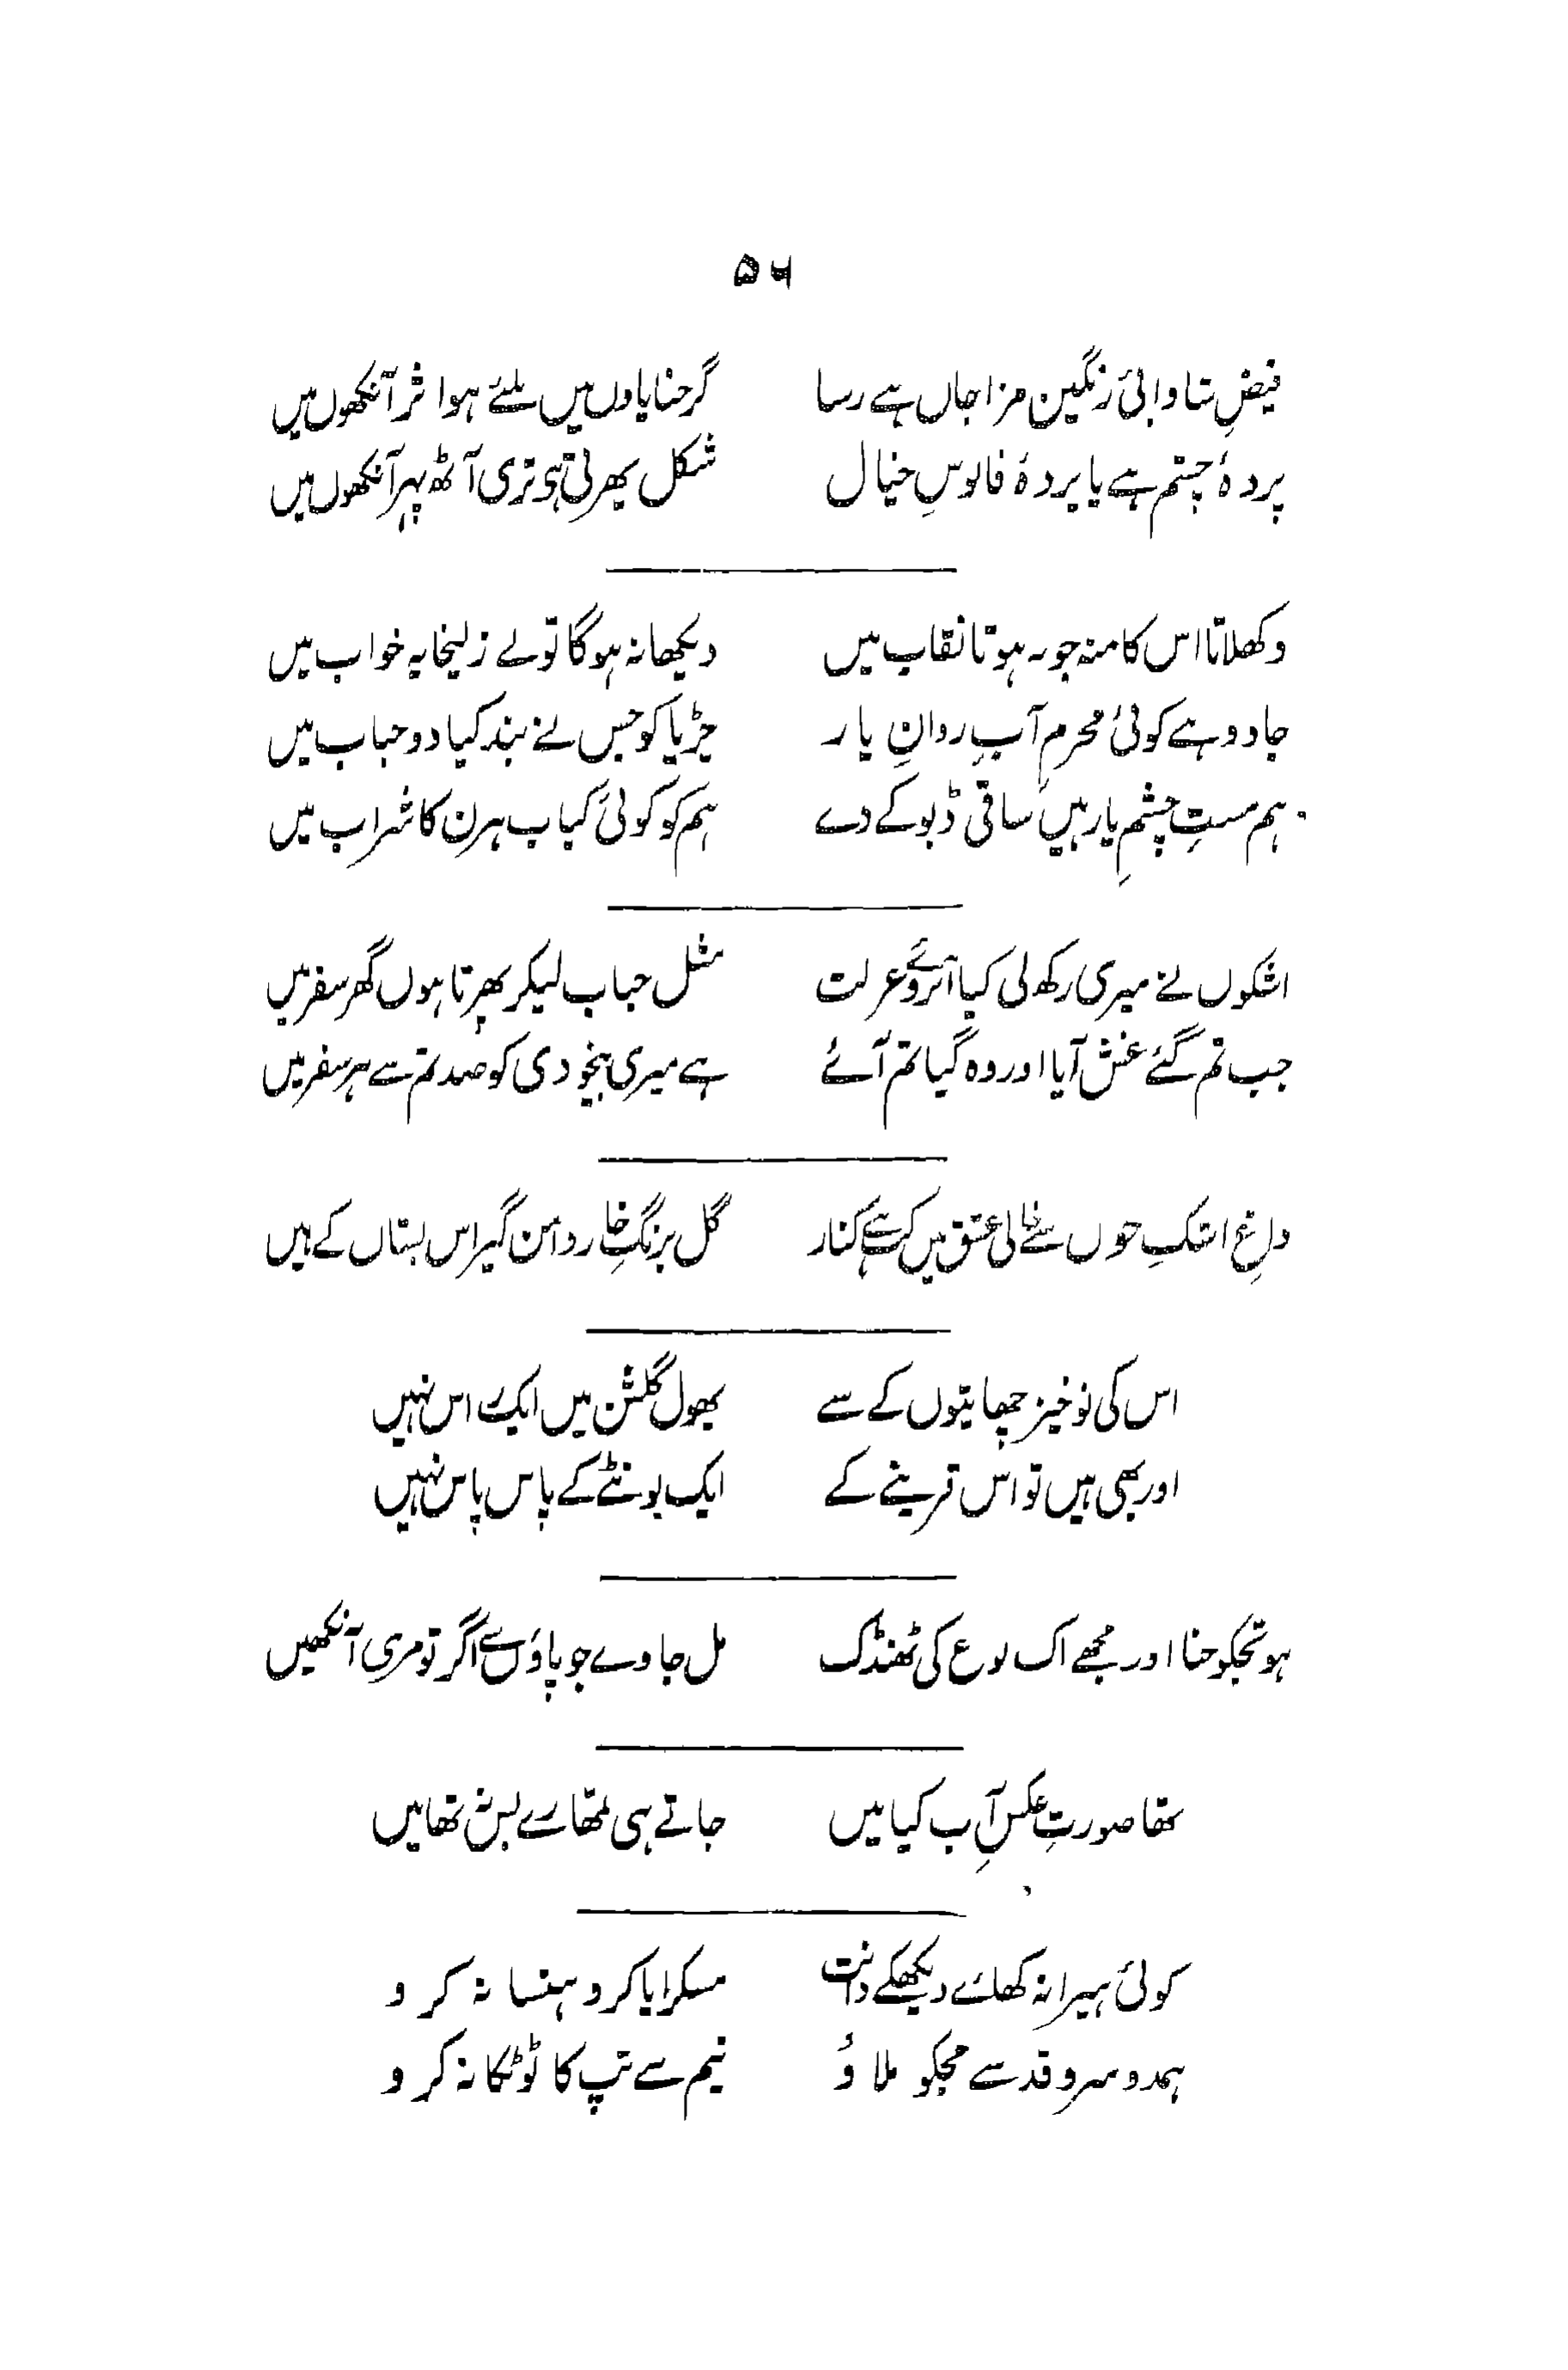 ۵۶
فیضِ شادابیٔ رنگین مزاجاں ہے رسا گر حنا پاوں میں ملئے ہو اثر آنکھوں میں
پردۂ چشم ہے یا پردۂ فانوسِ خیال شکل پھرتی ہو تری آٹھ پہر آنکھوں میں
دکھلاتا اس کا منہ جو نہ ہوتا نقاب میں دیکھا نہ ہوگا تو نے زلیخا یہ خواب میں
جادو ہے کوئی محرمِ آبِ روانِ یار چڑیا کو جس نے بند کیا دو حباب میں
ہم مستِ چشمِ یار ہیں ساقی ڈبو کے دے ہم کو کوئی کباب ہرن کا شراب میں
اشکوں نے میری رکھ لی کیا آبروئے عزلت مثل حباب لیکر پھرتا ہوں گھر سفر میں
جب تم گئے غش آیا اور وہ گیا تم آئے ہے میری بیخودی کو ضد تم سے ہر سفر میں
داغِ اشکِ خوں سے خالی عشق میں کب ہے کنار گل برنگِ خار دامن گیر اس بستاں کے ہیں
اس کی نوخیز چھاتیوں کے سے پھول گلشن میں ایک راس نہیں
اور بھی ہیں تو اس قرینے کے ایک بونٹے کے پاس پاس نہیں
ہو تجکو حنا اور مجھے اک نوع کی ٹھنڈک مل جاوے جو پاؤں سے اگر تو مری آنکھیں
تھا صورتِ عکسِ آب کیا میں جاتے ہی تمھارے بس نہ تھا میں
کوئی ہیرا نہ کھائے دیکھکے دانت مسکرایا کرو ہنسا نہ کرو
ہمدو سرو قد سے مجکو ملاؤ نیم سے تپ کا ٹوٹکا نہ کرو